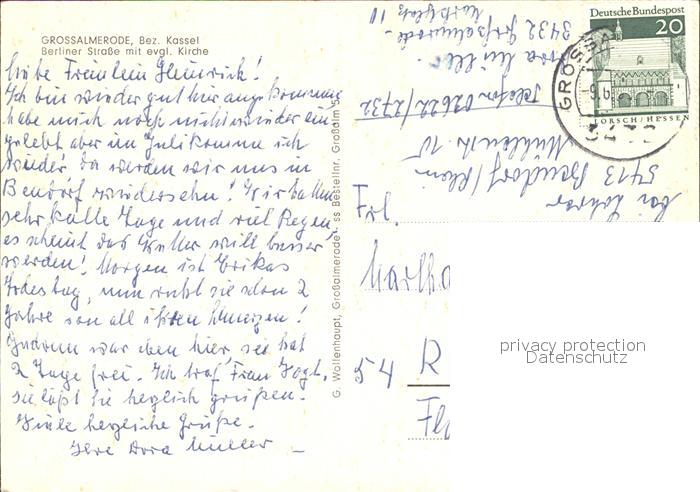 GROSSALMERODE, Bez. Kassel
Berliner Straße mit evgl. Kirche
Liebe Fräulein Heinrich!
Ich bin wieder gut hier angekommen
habe mich noch nicht wieder ein-
gelebt aber im Juli komme ich
wieder, da werden wir uns in
Bendorf wiedersehn! Wir hatten
sehr kalte Tage und viel Regen,
es scheint das Wetter will besser
werden! Morgen ist Erikas
Todestag, nun ruht sie schon 2
Jahre von all ihren Schmerzen!
Gudrun war eben hier, sie hat
2 Tage frei. Ich traf Frau Vogt,
sie läßt Sie herzlich grüßen.
Viele herzliche Grüße.
Ihre Dora Müller
G. Wollenhaupt, Großalmerode
ss Bestellnr. Großalm
Dora Müller
3432 Großalmerode
Marktplatz 10
Telefon 02622/2732
5413 Bendorf/Rhein
Mühlenstr. 15
bei
Frl.
Martha
54 R
Deutsche Bundespost
20
LORSCH/HESSEN
GROSSA
3432
privacy protection
Datenschutz